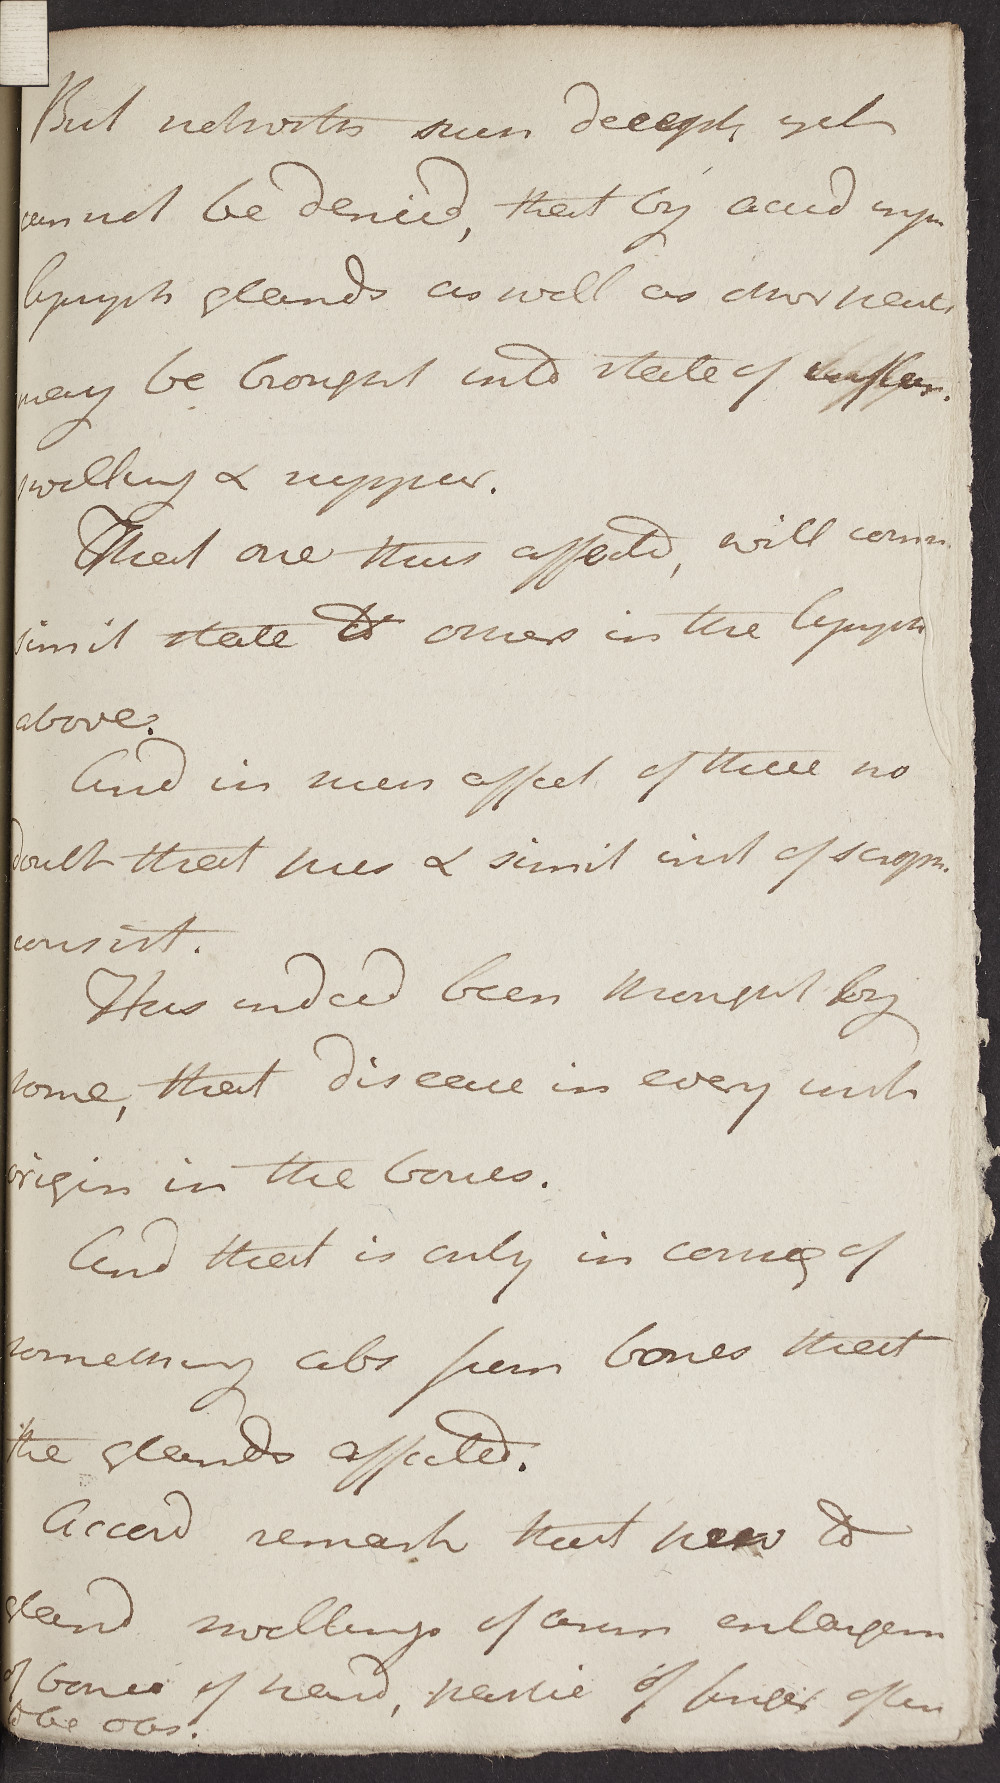 But notwiths seen deeply, yet
cannot be denied, that by acrid inject
lymph glands as well as other parts
may be brought into state of inflam.
swelling & suppur.
That one thus affected, will comm
simil state to others in the lymph
above.
And in such affect. of these no
doubt that pus & simil ind of scroph.
consist.
Has indeed been thought by
some, that disease in every inst
origin in the bones.
And that is only in conseq of
something abs from bones that
the glands affected.
Accord remark that prev to
gland swellings of arm enlargem
of bones of hand, partic of finger often
to be obs.